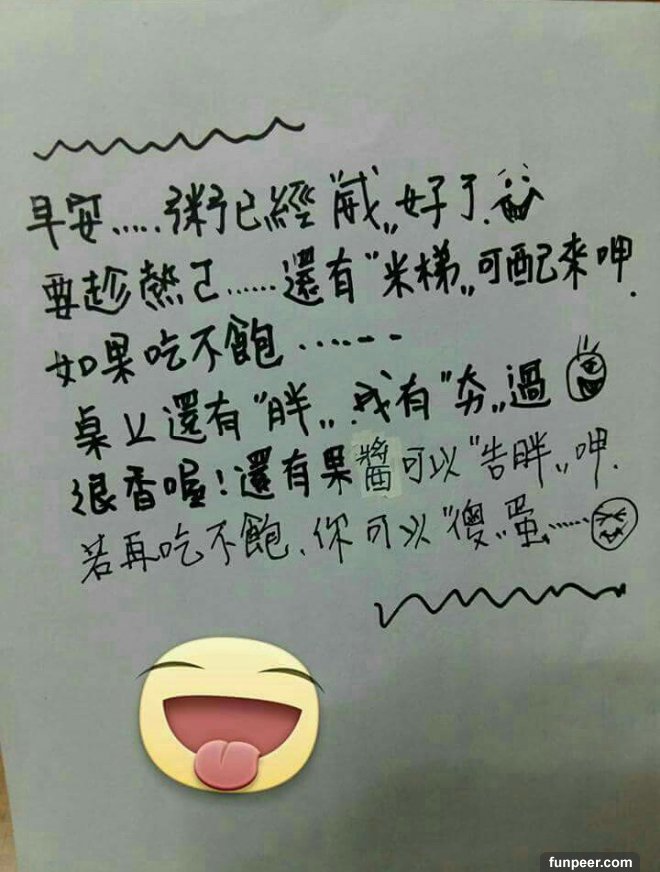 早安.....粥已經"威"好了.
要趁熱己......還有"米梯"可配來呷.
如果吃不飽.......
桌上還有"胖".我有"夯"過
很香喔!還有果醬可以"告胖"呷.
若再吃不飽.你可以"傻"蛋.....
funpeer.com